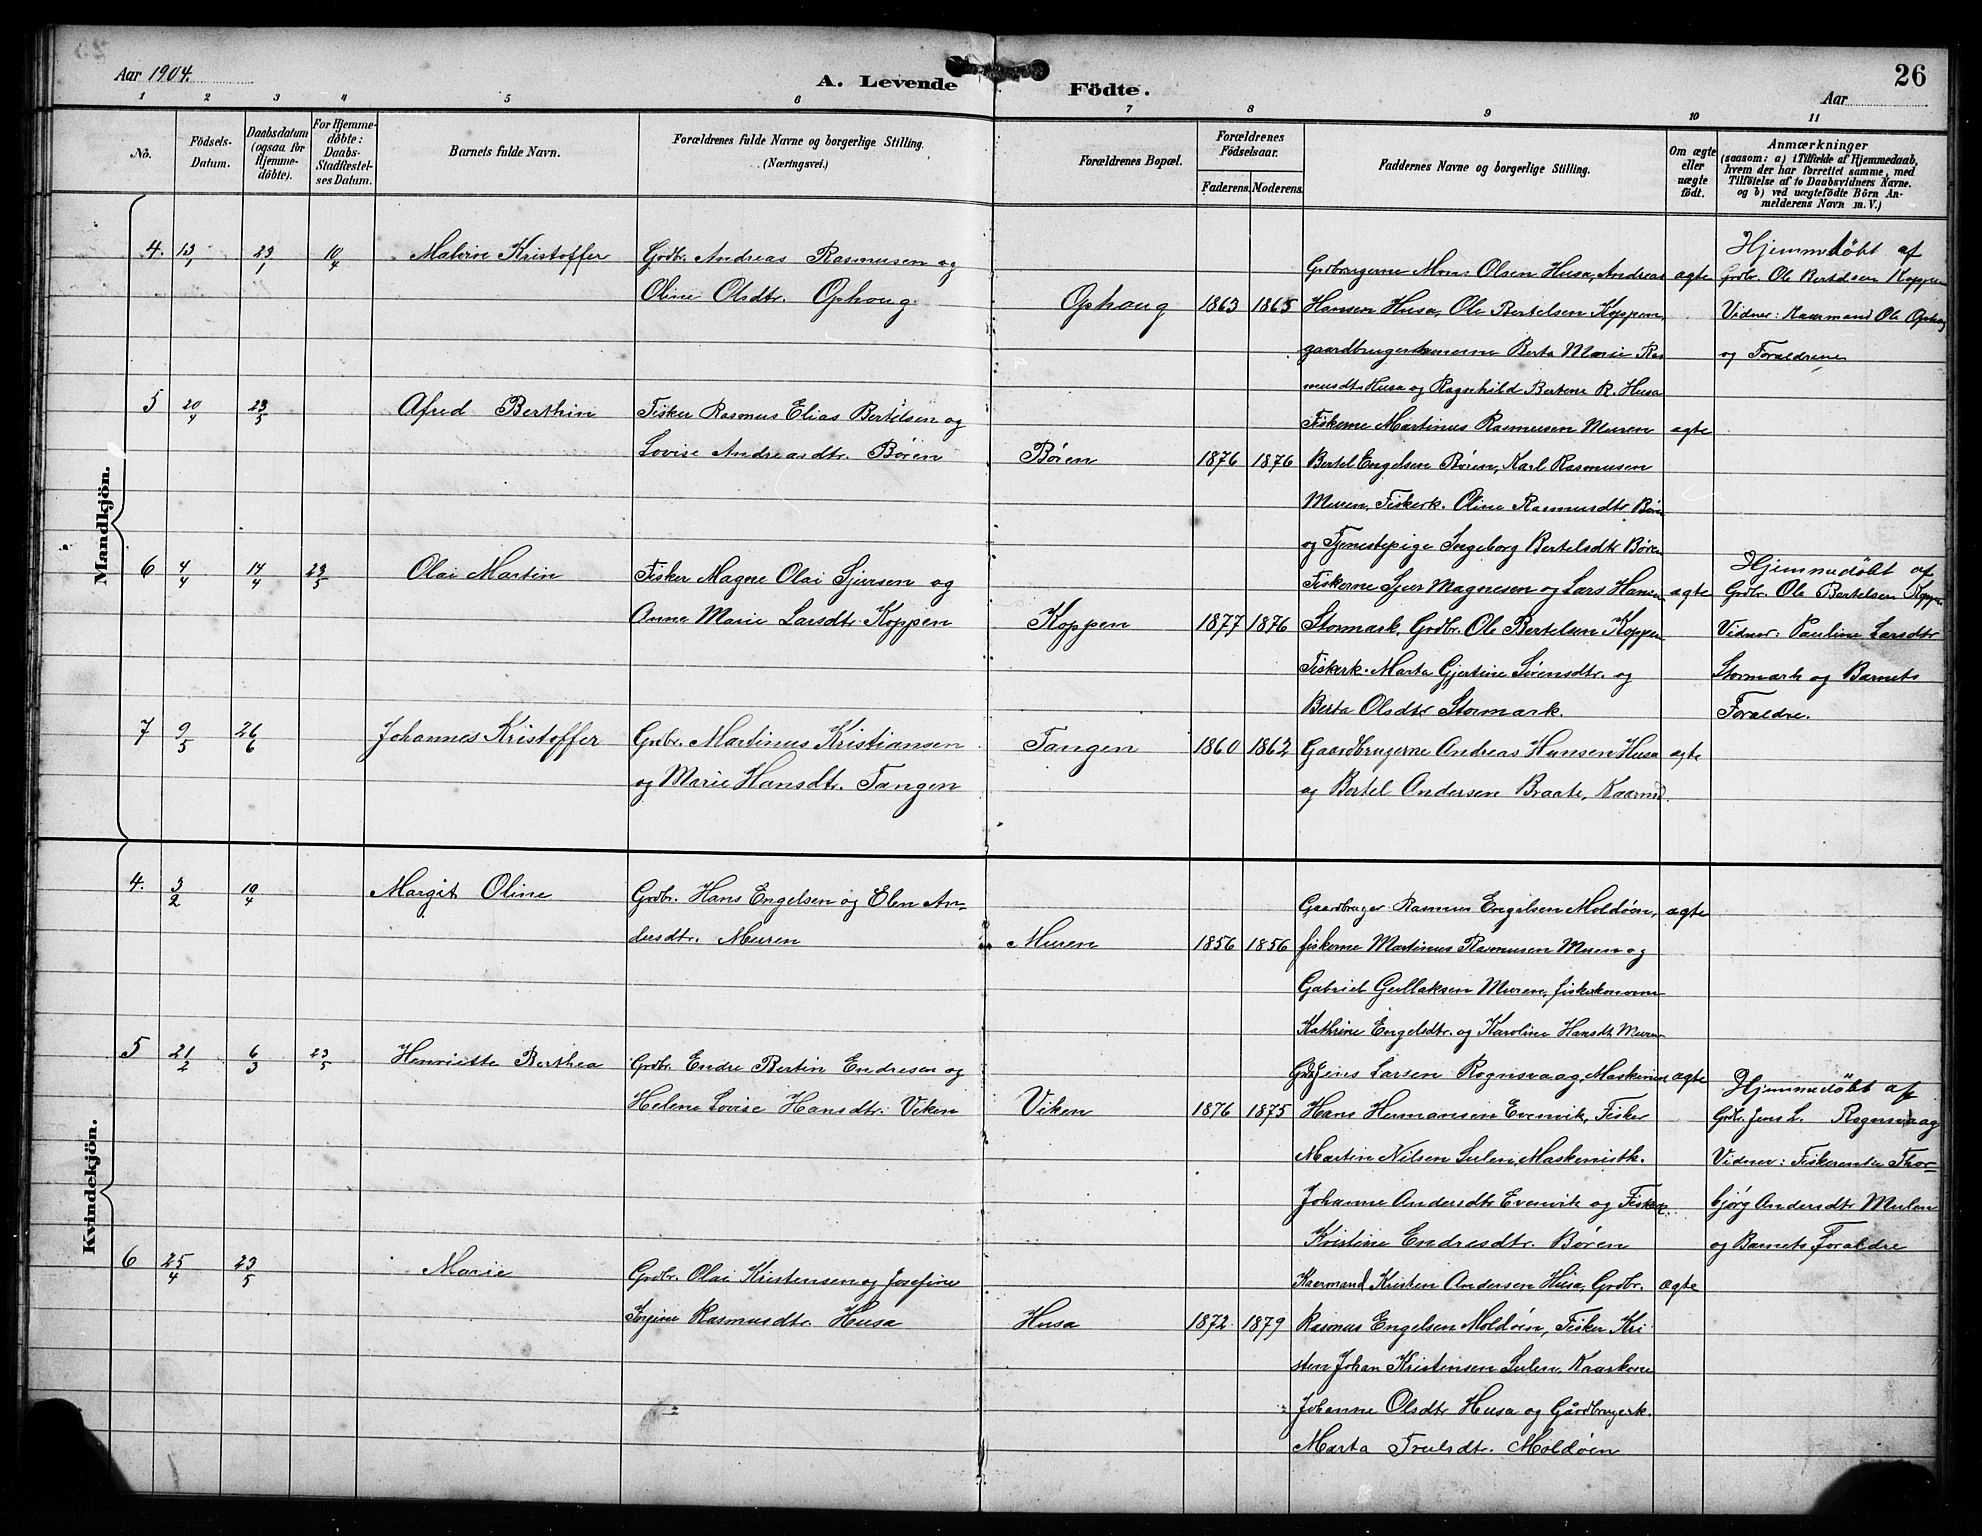 26
Aar 1904.
A. Levende Födte.
Aar
1 2 3 4 5 6 7 8 9 10 11
No.
Födsels-Datum.
Daabsdatum (ogsaa for Hjemme-döbte).
For Hjemme-döbte: Daabs-Stadfæstel-ses Datum.
Barnets fulde Navn.
Forældrenes fulde Navne og borgerlige Stilling.
(Næringsvei.)
Forældrenes Bopæl.
Forældrenes Födselsaar.
Faderens. Moderens.
Faddernes Navne og borgerlige Stilling.
Om ægte eller uægte födt.
Anmærkninger
(saasom: a) i Tilfælde af Hjemmedaab,
hvem der har forrettet samme, med
Tilföielse af to Daabsvidners Navne.
og b) ved uægtefödte Börn An-
melderens Navn m. V.)
Mandkjön.
4. 13/1 23/1 10/4
Malvin Kristoffer
Grdbr. Andreas Rasmusen og
Oline Olsdtr. Ophoug.
Ophoug 1863 1865
Grdbrugerne Mons Olsen Husa, Andreas
Hansen Husa, Ole Bertelsen Koppen,
gaardbrugerkonerne Berta Marie Ras
musdtr Husa og Ragnhild Bertene R. Husa
ægte
Hjemmedøbt af
Grdbr. Ole Bertelsen Koppen
Vidner: Kaarmand Ole Ophoug
og Forældrene
5 20/4 23/5
Afred Berthin
Fisker Rasmus Elias Bertelsen og
Lovise Andreasdtr. Børen
Børen 1876 1876
Fiskerne Martinus Rasmusen Muren
Bertel Engelsen Børen, Karl Rasmusen
Muren, Fiskerk. Oline Rasmusdtr Børe
og Tjenestepige Ingeborg Bertelsdtr Børen
ægte
6 4/4 14/4 23/5
Olai Martin
Fisker Magne Olai Sjursen og
Anna Marie Larsdtr. Koppen
Koppen 1877 1876
Fiskerne Sjur Magnesen og Lars Hansen
Stormark, Grdbr. Ole Bertelsen Koppen
Fiskerk. Marta Gjertine Sørensdtr. og
Berta Olsdtr Stormark.
ægte
Hjemmedøbt af
Grdbr. Ole Bertelsen Koppen
Vidner: Pauline Larsdtr
Stormark og Barnets
Forældre.
7 9/5 26/6
Johannes Kristoffer
Grdbr. Martinus Kristiansen
og Marie Hansdtr. Tangen
Tangen 1860 1862
Gaardbrugerne Andreas Hansen Husa
og Bertel Andersen Braate, Kaarmd.
ægte
Kvindekjön.
4. 3/2 10/4
Margit Oline
Grdbr. Hans Engelsen og Elen An-
dersdtr. Muren
Muren 1856 1856
Gaardbruger Rasmus Engelsen Moldøen,
fiskerne Martinus Rasmusen Muren og
Gabriel Gullaksen Muren, fiskerkonerne
Kathrine Engelsdtr. og Karoline Hansdt. Muren
ægte
5 21/2 6/3 23/5
Henriette Berthea
Grdbr. Endre Bertin Endresen og
Helene Lovise Hansdtr. Viken
Viken 1876 1875
Grdbr Jens Larsen Rognsvaag, Maskinist
Hans Hermansen Evenvik, Fisker
Martin Nilsen Sulen, Maskenistk.
Johanne Andersdtr Evenvik og Fiskerk.
Kristine Endresdtr. Børen
ægte
Hjemmedøbt af
Grdbr. Jens L. Rognsvaag
Vidner: Fiskerenke Thor-
bjørg Andersdtr Mulen
og Barnets Forældre
6 25/4 23/5
Marie
Grdbr. Olai Kristensen og Josefine
Ingine Rasmusdtr. Husa
Husa 1872 1879
Kaarmand Kristen Andersen Husa, Grdbr.
Rasmus Engelsen Moldøen, Fisker Kri
sten Johan Kristensen Sulen, Kaarkone
Johanne Olsdtr Husa og Gårdbrugerk.
Marta Trulsdtr. Moldøen
ægte